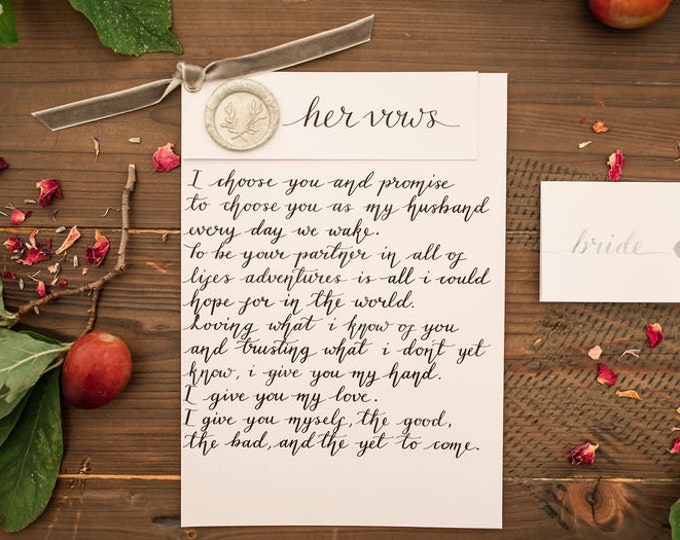 her vows
I choose you and promise
to choose you as my husband
every day we wake.
To be your partner in all of
lifes adventures is all i could
hope for in the world.
Loving what i know of you
and trusting what i don't yet
know, i give you my hand.
I give you my love.
I give you myself, the good,
the bad, and the yet to come.
bride